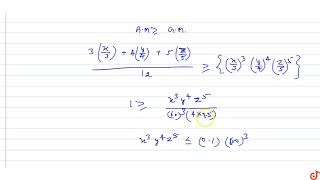 A.M ≥ G.M.
3(x/3) + 4(y/4) + 5(z/5) / 12 ≥ {(x/3)^3 (y/4)^4 (z/5)^5
1 ≥ x^3 y^4 z^5 / (60)^3 (4×25)
x^3 y^4 z^5 ≤ (0.1) (60)^3